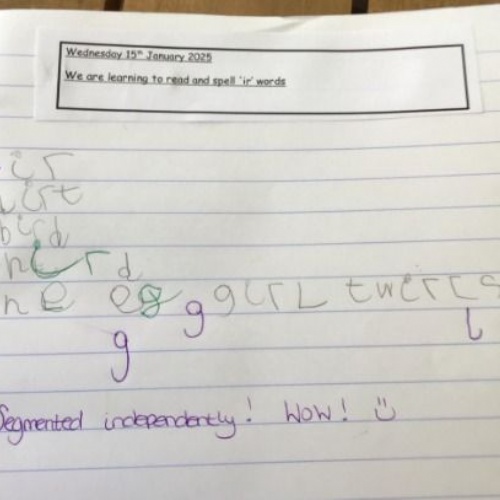 Wednesday 15th January 2025
We are learning to read and spell 'ir' words
ir
irt
bird
hird
he eg g girl twirls
g l
Segmented independently! Wow! :)